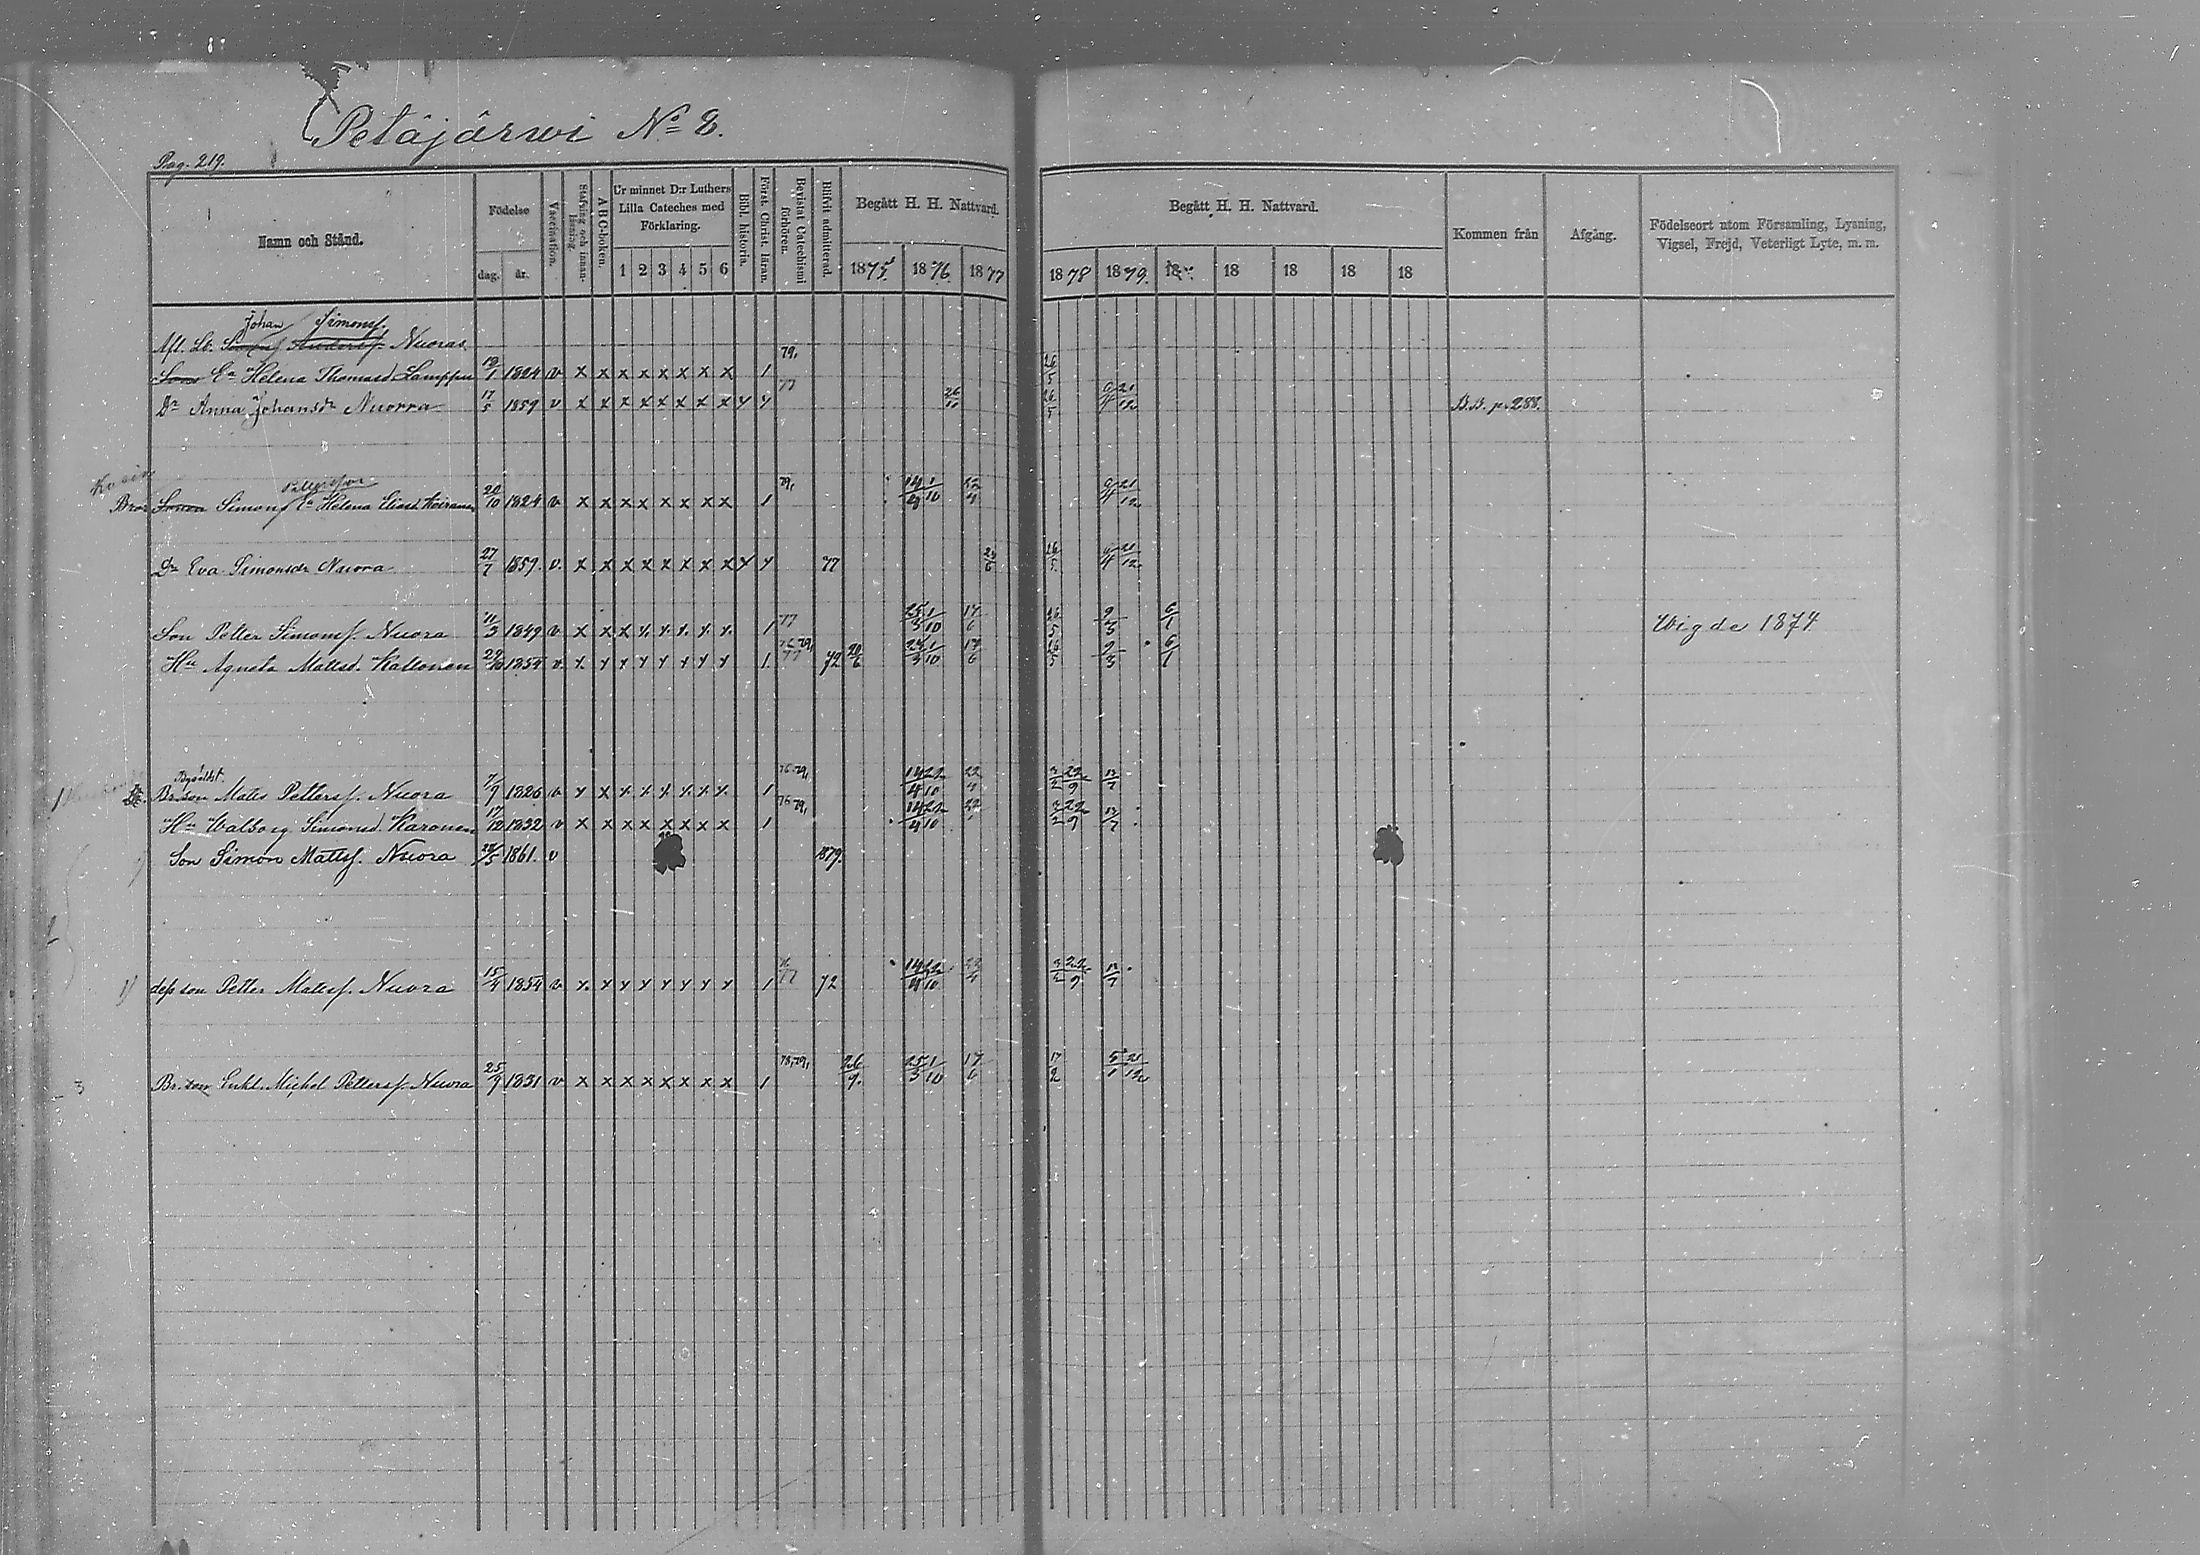 Petäjärwi No 8.
Pag. 219.
Namn och Stånd. Födelse dag. år. Vaccination. Stafning och innanläsning. ABC-boken. Ur minnet D:r Luthers Lilla Cateches med Förklaring. 1 2 3 4 5 6 Bibl. historia. Först. Christ. läran. Bevistat Catechismi förhören. Blifvit admitterad. Begått H. H. Nattvard. 1875. 1876. 1877
Begått H. H. Nattvard. 1878 1879. 18 18 18 18 18 Kommen från Afgång. Födelseort utom Församling, Lysning, Vigsel, Frejd, Veterligt Lyte, m. m.
Johan Simonsf.
Afl. Lb. Simon Andersf. Nuoras
79.
Sons Ea Helena Thomasd. Lamppu 18/1 1824 v x x x x x x x x 1 26/5
77
Dr Anna Johansdr Nuorra 17/5 1859 v x x x x x x x x y y 26/5 21/12 B.B. p. 288.
Pettersson
79,
Bror Simonsf Ea Helena Eliasd. 20/10 1824 v x x x x x x x x 1 1/10 21/12
Dr Eva Simonsdr Nuora 27/7 1859. v. x x x x x x x x y y 77 26/5 21/12
77
Son Petter Simonsf. Nuora 11/3 1849 v. x x x x x x x x 1 25/3 1/10 17/6 26/5 9/3 6/1 Wigde 1874
76 79,
Hu Agneta Mattsd. Kattonen 29/10 1854 v. x y y y y y y y 1. 77 72 20/6 25/3 1/10 17/6 26/5 9/3 6/1
76 79,
Br.son Mats Pettersf. Nuora 7/9 1826 v x x x x x x x x 1 14/4 22/10 22/4 3/2 22/9 13/7
76 79,
Hu Walborg Simonsd. Karonen 17/12 1832 v x x x x x x x x 1 14/4 22/10 3/2 22/9 13/7
Son Simon Mattsf. Nuora 28/5 1861. v 1879.
1) dess son Petter Mattsf. Nuora 15/4 1854 v. x. x y y y y y y 1 77 72 14/4 22/10 22/4 3/2 22/9 13/7
78, 79,
3 Br. son Enkl. Michel Pettersf. Nuora 25/9 1831 v x x x x x x x x 1 26/9. 25/3 1/10 17/6 17/2 5/1 21/12